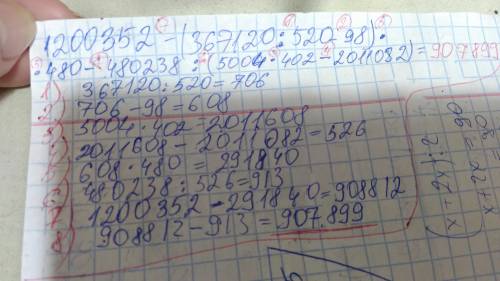 1200352 - (367120 : 520 - 98) ·
· 480 - 480238 : (5004 · 402 - 2011082) = 907899
1) 367120 : 520 = 706
2) 706 - 98 = 608
3) 5004 · 402 = 2011608
4) 2011608 - 2011082 = 526
5) 608 · 480 = 291840
6) 480238 : 526 = 913
7) 1200352 - 291840 = 908812
8) 908812 - 913 = 907.899
(x + 2x) · 2
x + 2x = 90